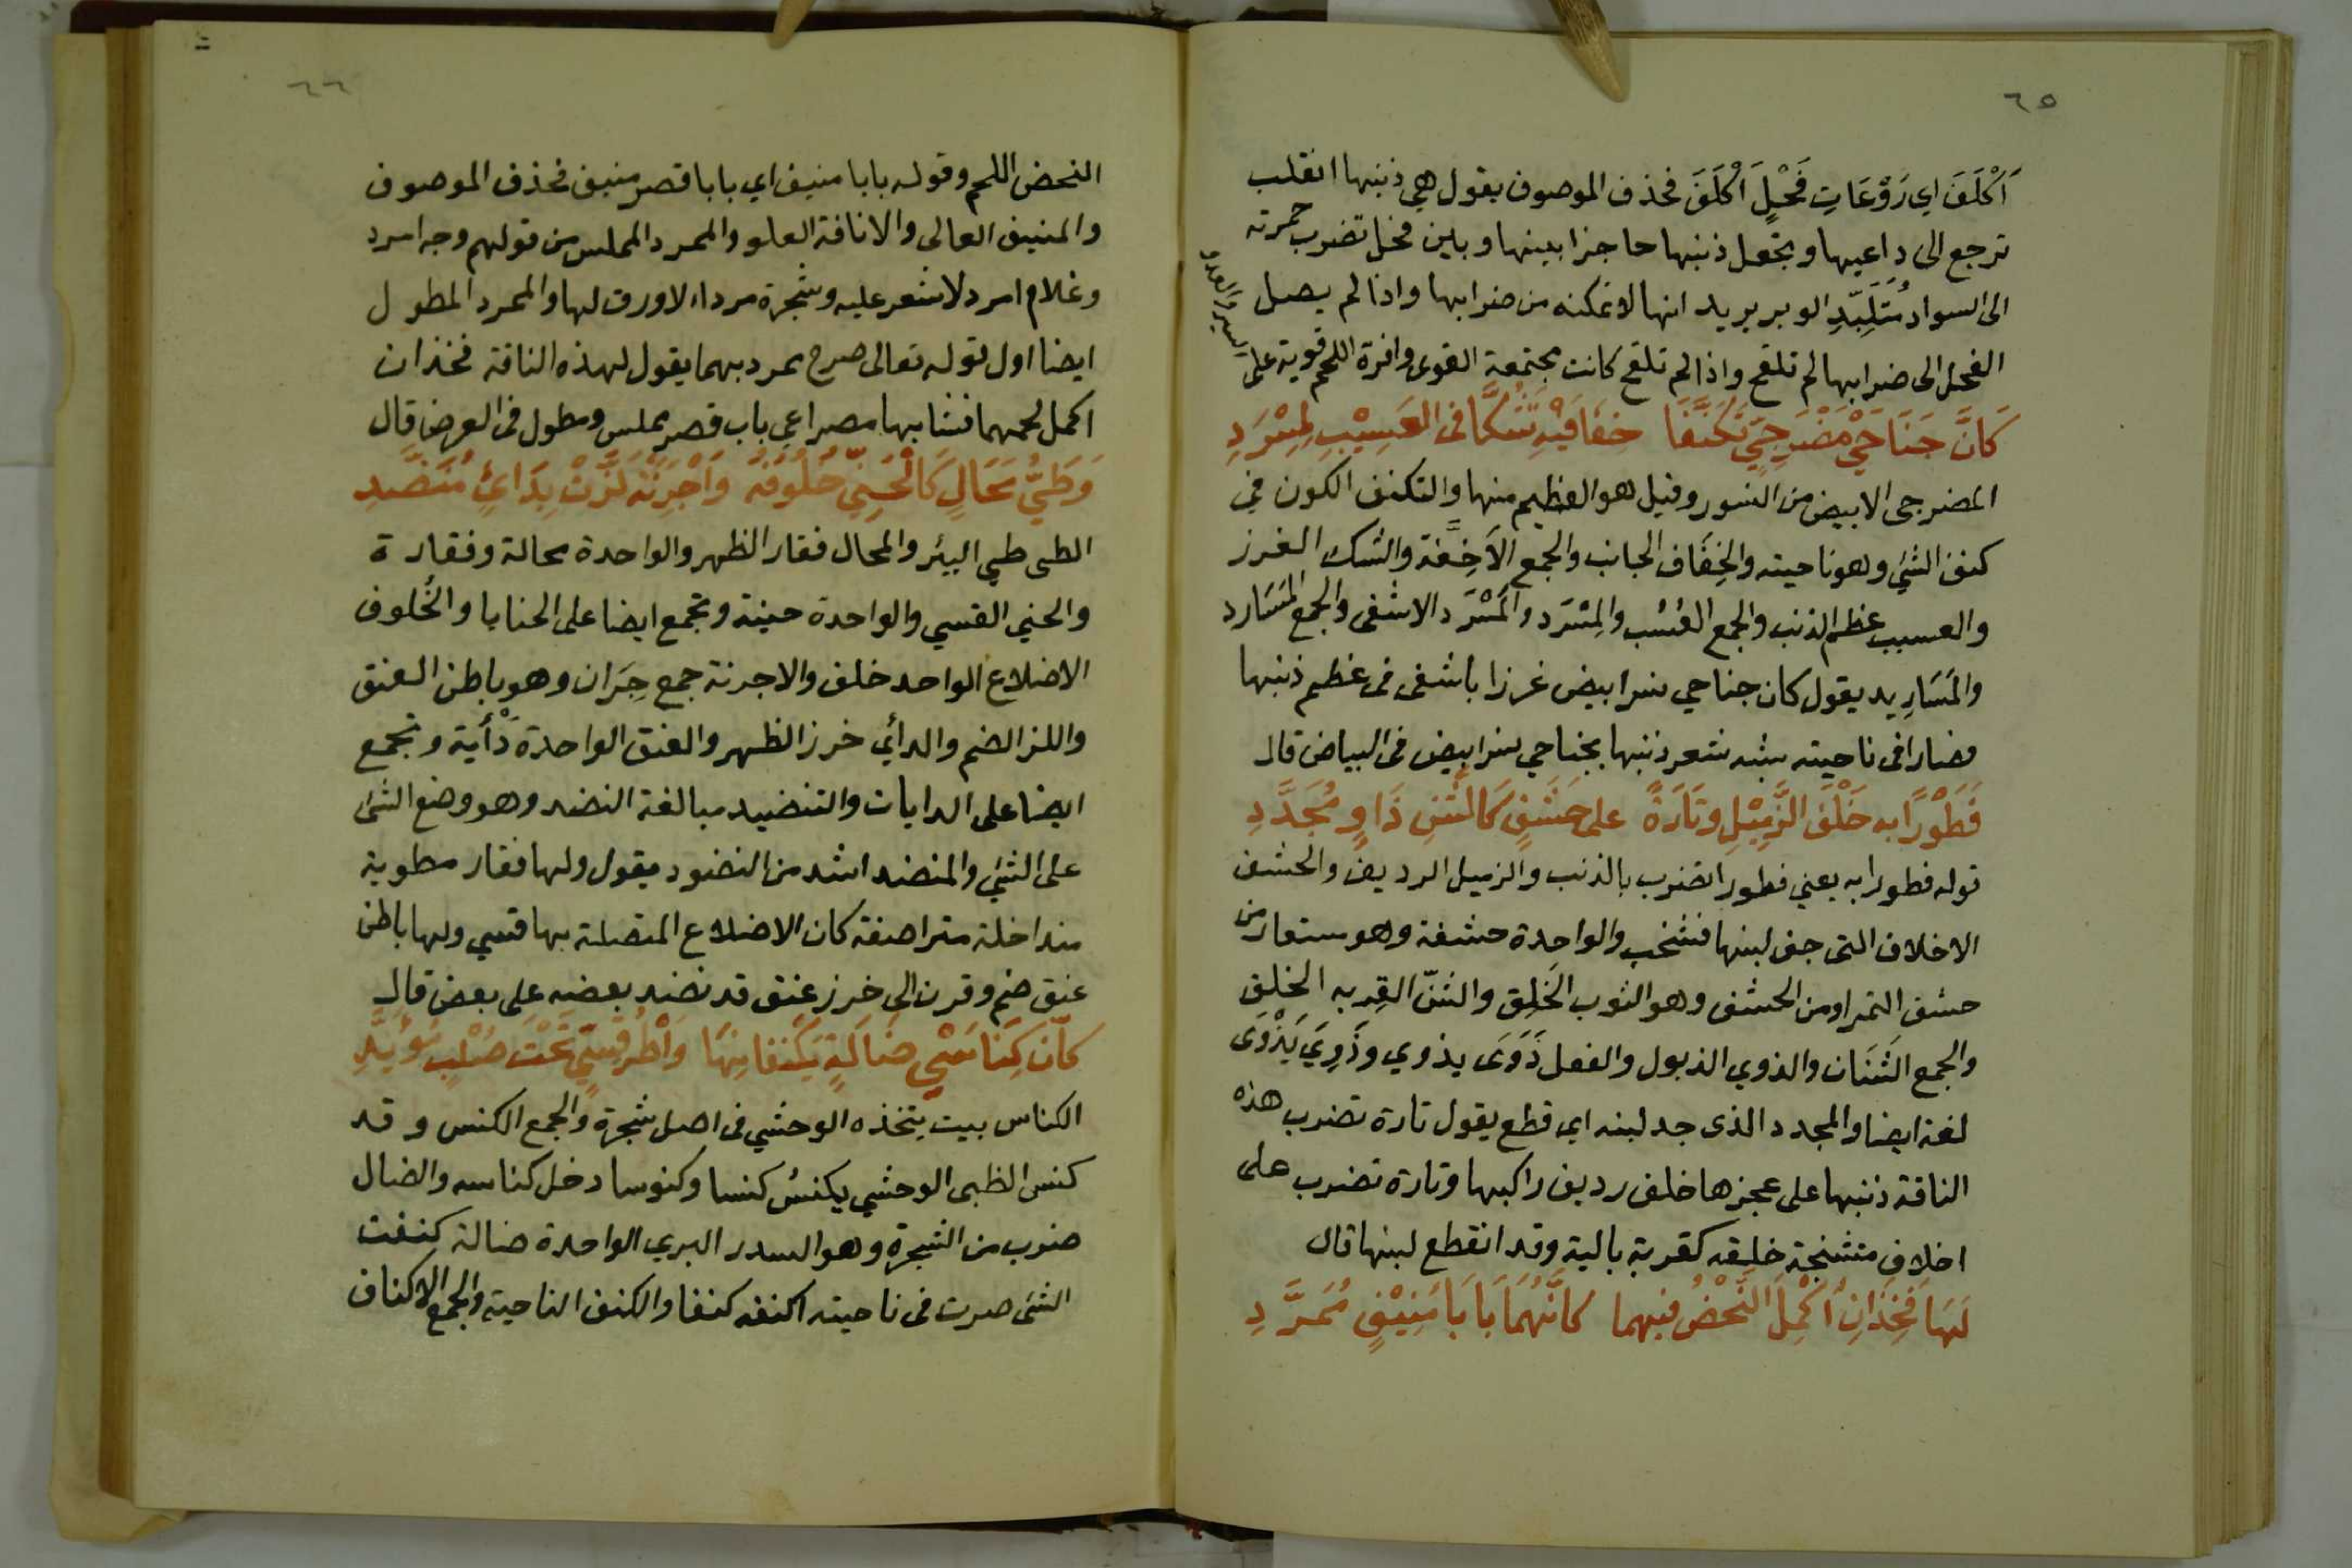 ٦٥
اَكْلَفَ اي رَوْعَاتِ فَحْلٍ اَكْلَفَ فحذف الموصوف يقول هي ذنبها انقلب
ترجع الى داعيها وتجعل ذنبها حاجزا بينها وبين فحل تضرب حمرته
الى السواد مُتَلَبِّدِ الوبر يريد انها لا تمكنه من ضرابها واذا لم يصل
الفحل الى ضرابها لم تلقح واذا لم تلقح كانت مجتمعة القوى وافرة اللحم قوية على
السير والعدو
كَانَّ جَنَاحَيْ مَضْرَحِيٍّ تَكَنَّفَا حِفَافَيْهِ شُكَّا فى العَسِيْبِ لِمِسْرَدِ
المضرحى الابيض من النسور وقيل هو العظيم منها والتكنف الكون في
كنف الشئ وهو ناحيته والحِفَاف الجانب والجمع الاَحِفّة والشك الغرز
والعسيب عظم الذنب والجمع العُسُب والمِسْرَد والمَسْرَد الاشفى والجمع المَسَارد
والمَسَارِيد يقول كان جناحي نسر ابيض غرزا باشفى فى عظم ذنبها
فصارا فى ناحيته شبه شعر ذنبها بجناحي نسر ابيض فى البياض قال
فَطَوْرًا به خَلْفَ الزَّمِيْلِ وتَارَةً على حَشَفٍ كَالشَّنِ ذَاوٍ مُجَدَّدِ
قوله فطورا به يعني فطورا تضرب بالذنب والزميل الرديف والحشف
الاخلاف التى جف لبنها فتشنجب والواحدة حشفة وهو مستعار من
حشف التمر او من الحشف وهو الثوب الخَلِق والشنّ القِربه الخلق
والجمع الشَنَان والذوي الذبول والفعل ذَوَى يذوي وذَوِيَ يَذْوَى
لغة ايضا والمجدد الذى جد لبنه اي قطع يقول تارة تضرب هذه
الناقة ذنبها على عجزها خلف رديف راكبها وتارة تضرب على
اخلاف متشنجة خلقه كقربة بالية وقد انقطع لبنها قال
لَهَا فَخِذَانِ اُكْمِلَ النَّحْضُ فيهما كاَنَّهُمَا بَابَا مُنِيْفٍ مُمَرَّدِ
٦٦
النحض اللحم وقوله بابا منيف اي بابا قصر منيف فحذف الموصوف
والمنيف العالى والانافة العلو والممرد المملس من قولهم وجه امرد
وغلام امرد لا شعر عليه وشجرة مرداء لا ورق لها والممرد المطول
ايضا اول قوله تعالى صرح ممرد بهما يقول لهذه الناقة فخذان
اكمل لحمهما فشابها مصراعي باب قصر مملس ومطول فى العرض قال
وَطَيُّ مَحَالٍ كَالحَنِيِّ خُلُوفُهُ وَاَجْرِنَةٌ لُزَّتْ بِدَائٍ مُنَضَّدِ
الطى طي البئر والمحال فقار الظهر والواحدة محالة وفقارة
والحني القسي والواحدة حنية وتجمع ايضا على الحنايا والخُلوف
الاضلاع الواحد خلف والاجرنة جمع جِرَان وهو باطن العنق
واللز الضم والدأي خرز الظهر والعنق الواحدة دَأْية وتجمع
ايضا على الدايات والتنضيد مبالغة النضد وهو وضع الشئ
على الشئ والمنضد اشد من النضود يقول ولها فقار مطوية
متداخلة متراصفة كان الاضلاع المتصلة بها قسي ولها باطن
عنق ضم وقرن الى خرز عنق قد نضد بعضه على بعض قال
كاَنّ كِنَاسَيْ ضَالَةٍ يَكْنفانِهَا وَاَطْرَ قِسِيٍّ تَحْتَ صُلْبٍ مُوَيَّدِ
الكناس بيت يتخذه الوحشي فى اصل شجرة والجمع الكنس وقد
كنس الظبى الوحشي يكنسُ كنسا وكنوسا دخل كناسه والضال
ضرب من الشجرة وهو السدر البري الواحدة ضالة كنفت
الشئ صرت فى ناحيته اكنفه كنفا والكنف الناحية والجمع الاكناف